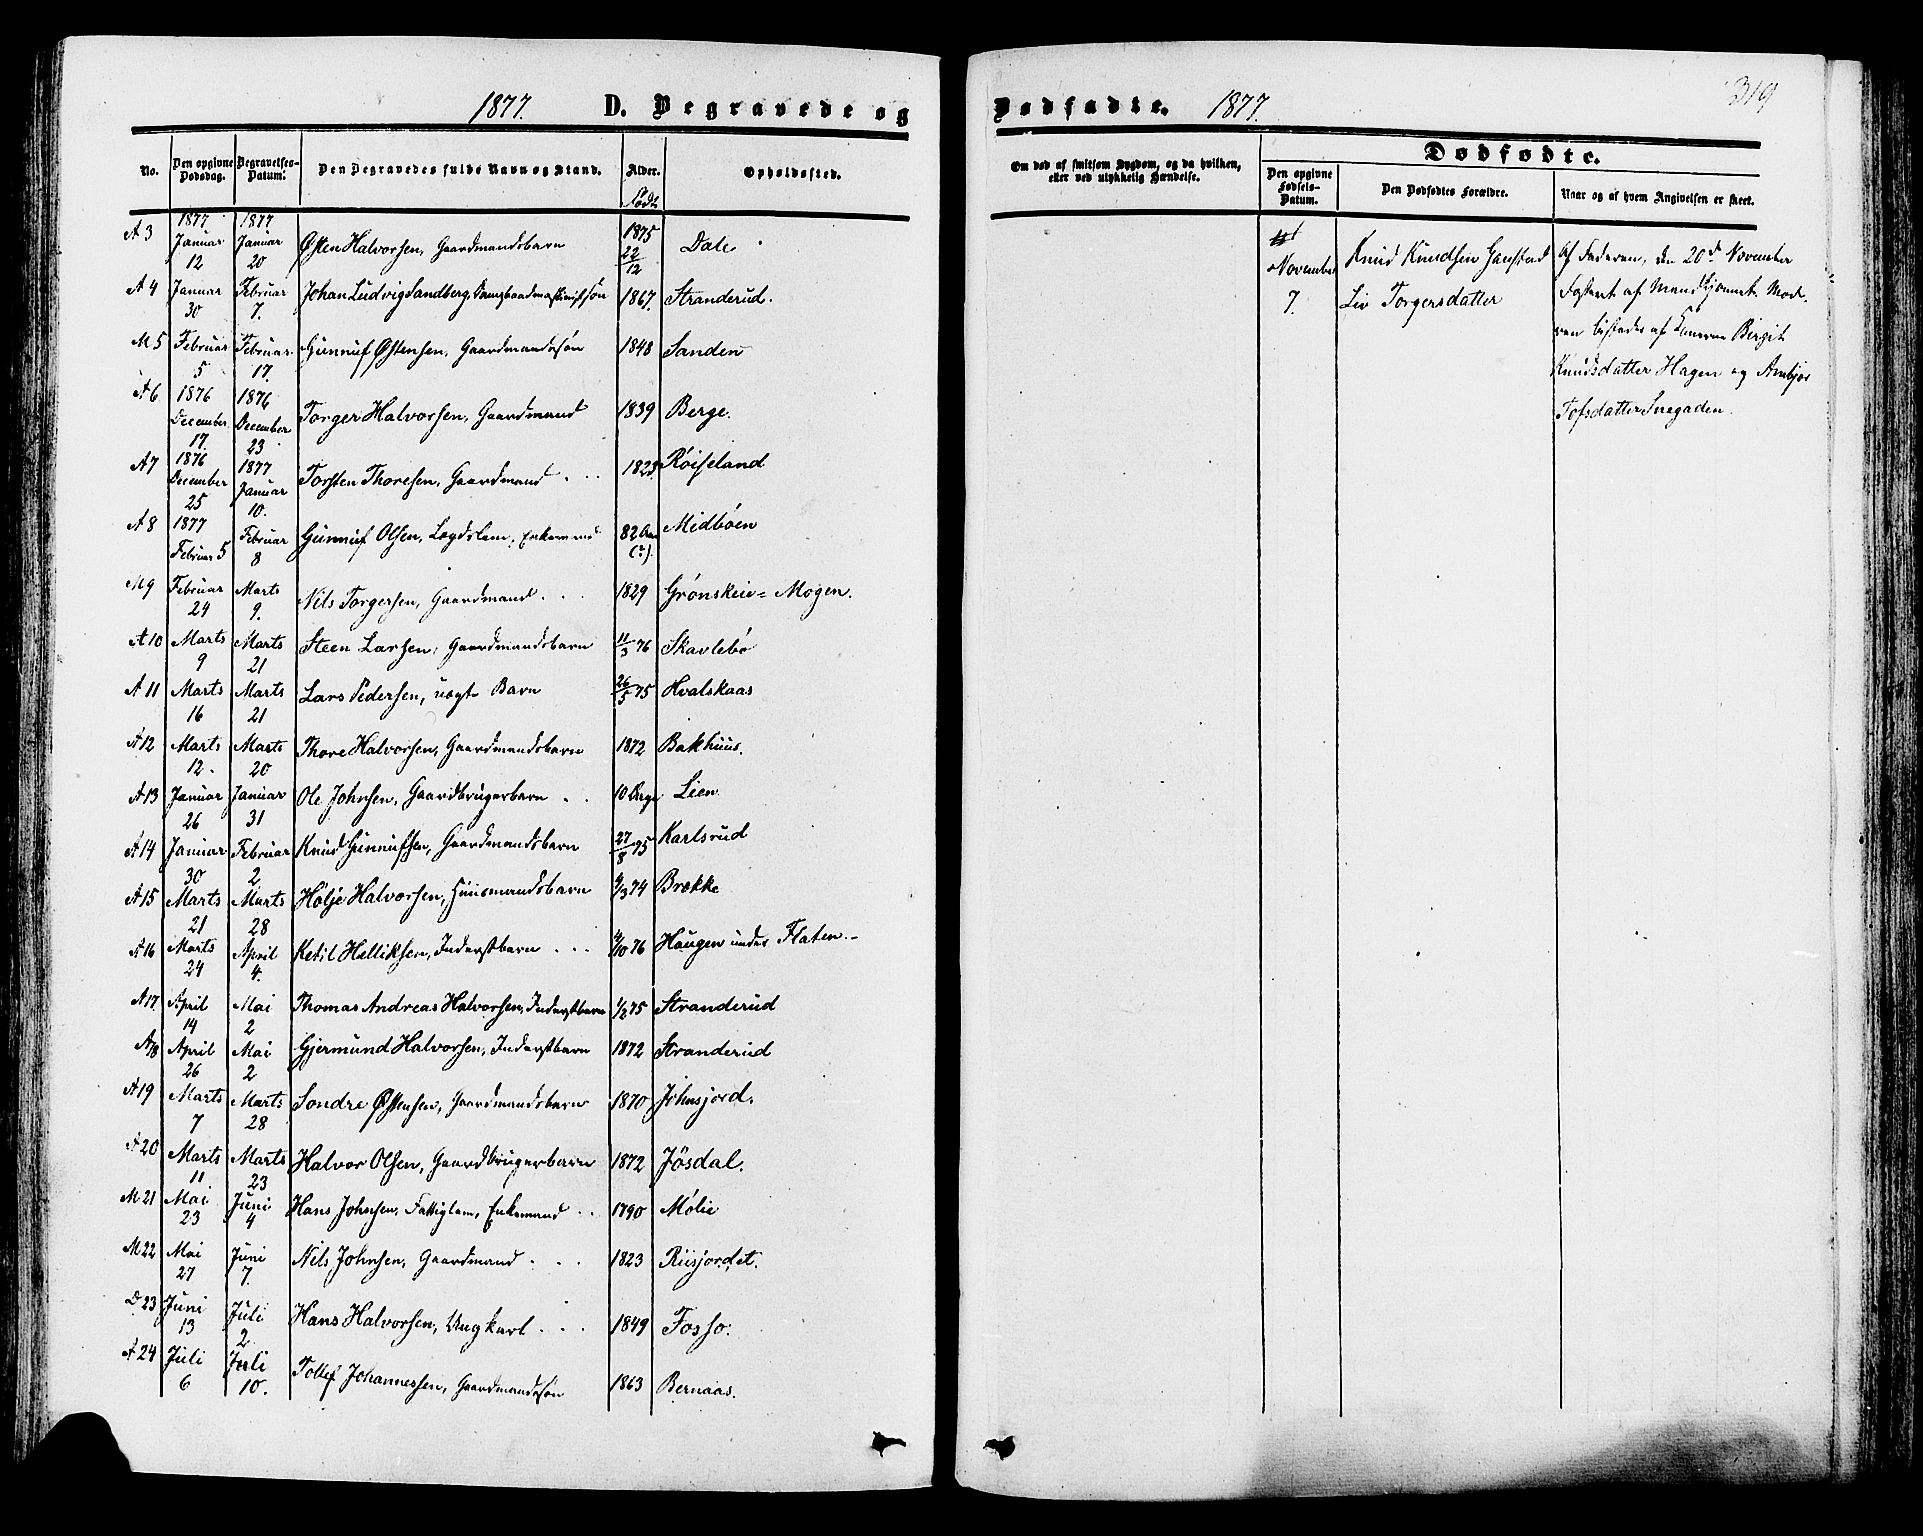 1877. D. Begravede og
No. Den opgivne Dødsdag. Begravelses-Datum. Den Begravedes fulde Navn og Stand. Alder. Født Opholdssted.
A 3 1877 Januar 12 1877 Januar 20 Østen Halvorsen, Gaardmandsbarn 1875 22/12 Dale
A 4 Januar 30 Februar 7. Johan Ludvig Sandberg, 1867. Stranderud.
M 5 Februar 5 Februar 17. Gunnuf Østensen, Gaardmandssøn 1848 Sanden
A 6 1876 December 17. 1876 December 23 Torger Halvorsen, Gaardmand 1839 Berge.
A 7 1876 December 25 1877 Januar 10. Torsten Thoresen, Gaardmand 1823 Røiseland
A 8 1877 Februar 5 Februar 8 Gunnuf Olsen, Lægdslem, Enkemand 82 Aar (?). Midbøen
M 9 Februar 24 Marts 9. Nils Torgersen, Gaardmand 1829 Grønskei= Mogen.
A 10 Marts 9 Marts 21 Steen Larsen, Gaardmandsbarn 11/3 76 Skavlebø
A 11 Marts 16 Marts 21 Lars Pedersen, uægt. Barn 26/5 75 Hvalskaas
A 12 Marts 12. Marts 20 Thore Halvorsen, Gaardmandsbarn 1872 Bakhuus.
A 13 Januar 26 Januar 31 Ole Johnsen, Gaardbrugerbarn 10 Dage Lien
A 14 Januar 30 Februar 2 Knud Gunnufsen, Gaardmandsbarn 27/8 75 Karlsrud
A 15 Marts 21 Marts 28 Hølje Halvorsen, Huusmandsbarn 4/3 74 Brække
A 16 Marts 24 April 4. Ketil Halliksen, Inderstbarn 4/10 76 Haugen under Flaten.
A 17 April 14 Mai 2 Thomas Andreas Halvorsen, Inderstbarn 1/2 75 Stranderud
A 18 April 26 Mai 2 Gjermund Halvorsen, Inderstbarn 1872 Stranderud
A 19 Marts 7 Marts 28 Sondre Østensen, Gaardmandsbarn 1870 Johnsjord.
A 20 Marts 11 Marts 23 Halvor Olsen, Gaardbrugerbarn 1872 Jøsdal.
M 21 Mai 23 Juni 4 Hans Johnsen, Fattiglem, Enkemand 1790 Mølie
M 22 Mai 27 Juni 7. Nils Johnsen, Gaardmand 1823 Riisjordet.
D 23 Juni 13 Juli 2 Hans Halvorsen, Ungkarl 1849 Fosso.
A 24 Juli 6 Juli 10. Tollef Johannessen, Gaardmandssøn 1863 Bernaas.
Dødfødte. 1877. 319
Om død af smitsom Sygdom, og da hvilken, eller ved ulykkelig Hændelse. Dødfødte.
Den opgivne Fødsels-Datum. Den Dødfødtes Forældre. Naar og af hvem Angivelsen er skeet.
1
November 7. Knud Knudsen Gaustad
Liv Torgersdatter
Af Faderen, den 20de November
Fosteret af Mandkjønnet. Mod-
ren bistodes af Konerne Birgit
Knudsdatter Hagen og Anbjør
Tofsdatter Snegaden.